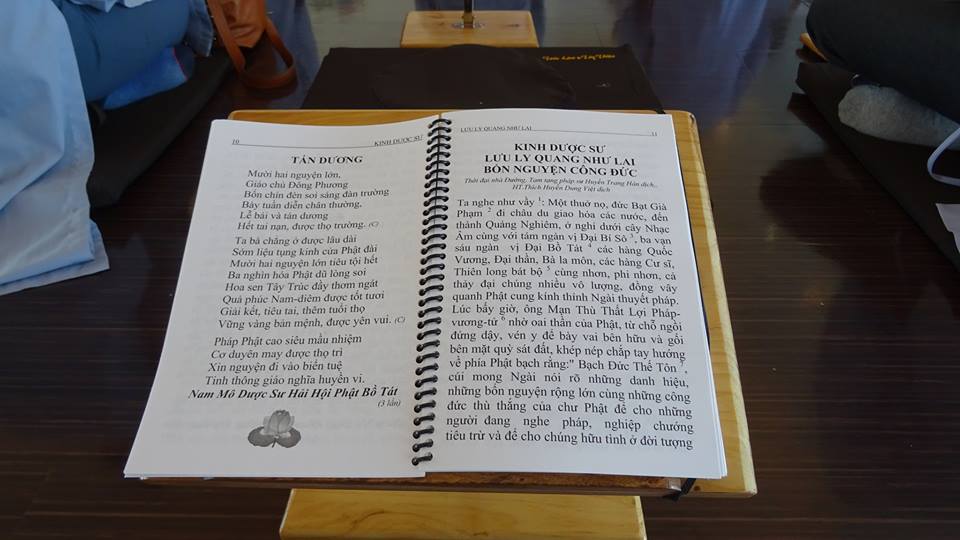 10 KINH DƯỢC SƯ
TÁN DƯƠNG
Mười hai nguyện lớn,
Giáo chủ Đông Phương
Bốn chín đèn soi sáng đàn trường
Bảy tuần diễn chân thường,
Lễ bái và tán dương
Hết tai nạn, được thọ trường. (C)
Ta bà chẳng ở được lâu dài
Sớm liệu tụng kinh cửa Phật đài
Mười hai nguyện lớn tiêu tội hết
Ba nghìn hóa Phật dũ lòng soi
Hoa sen Tây Trúc đầy thơm ngát
Quả phúc Nam-diêm được tốt tươi
Giải kết, tiêu tai, thêm tuổi thọ
Vững vàng bản mệnh, được yên vui. (C)
Pháp Phật cao siêu mầu nhiệm
Cơ duyên may được thọ trì
Xin nguyện đi vào biển tuệ
Tinh thông giáo nghĩa huyền vi.
Nam Mô Dược Sư Hải Hội Phật Bồ Tát
(3 lần)
LƯU LY QUANG NHƯ LAI 11
KINH DƯỢC SƯ
LƯU LY QUANG NHƯ LAI
BỔN NGUYỆN CÔNG ĐỨC
Thời đại nhà Đường, Tam tạng pháp sư Huyền Trang Hán dịch,.
HT.Thích Huyền Dung Việt dịch
Ta nghe như vầy 1: Một thuở nọ, đức Bạt Già
Phạm 2 đi châu du giáo hóa các nước, đến
thành Quảng Nghiêm, ở nghỉ dưới cây Nhạc
Âm cùng với tám ngàn vị Đại Bí Sô 3, ba vạn
sáu ngàn vị Đại Bồ Tát 4 các hàng Quốc
Vương, Đại thần, Bà la môn, các hàng Cư sĩ,
Thiên long bát bộ 5 cùng nhơn, phi nhơn, cả
thảy đại chúng nhiều vô lượng, đồng vây
quanh Phật cung kính thỉnh Ngài thuyết pháp.
Lúc bấy giờ, ông Mạn Thù Thất Lợi Pháp-
vương-tử 6 nhờ oai thần của Phật, từ chỗ ngồi
đứng dậy, vén y để bày vai bên hữu và gối
bên mặt quỳ sát đất, khép nép chắp tay hướng
về phía Phật bạch rằng:" Bạch Đức Thế Tôn 7,
cúi mong Ngài nói rõ những danh hiệu,
những bổn nguyện rộng lớn cùng những công
đức thù thắng của chư Phật để cho những
người đang nghe pháp, nghiệp chướng
tiêu trừ và để cho chúng hữu tình ở đời tượng